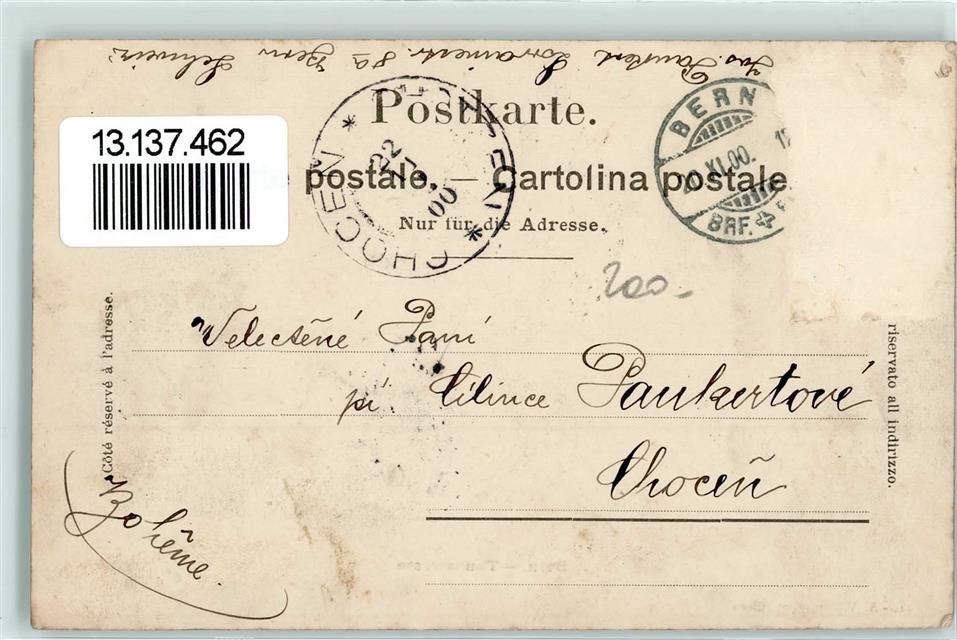 Jos. Paukert Lorrainestr. 8a Bern Schweiz
Postkarte.
postale. — Cartolina postale
Nur für die Adresse.
13.137.462
CHOCEŇ
22 11 00
BERN
20.XI.00.
BRF.
200.-
Côté réservé à l'adresse.
riservato all indirizzo.
Velectěné Paní
pí. Cilince Paukertové
Choceň
Bohême.